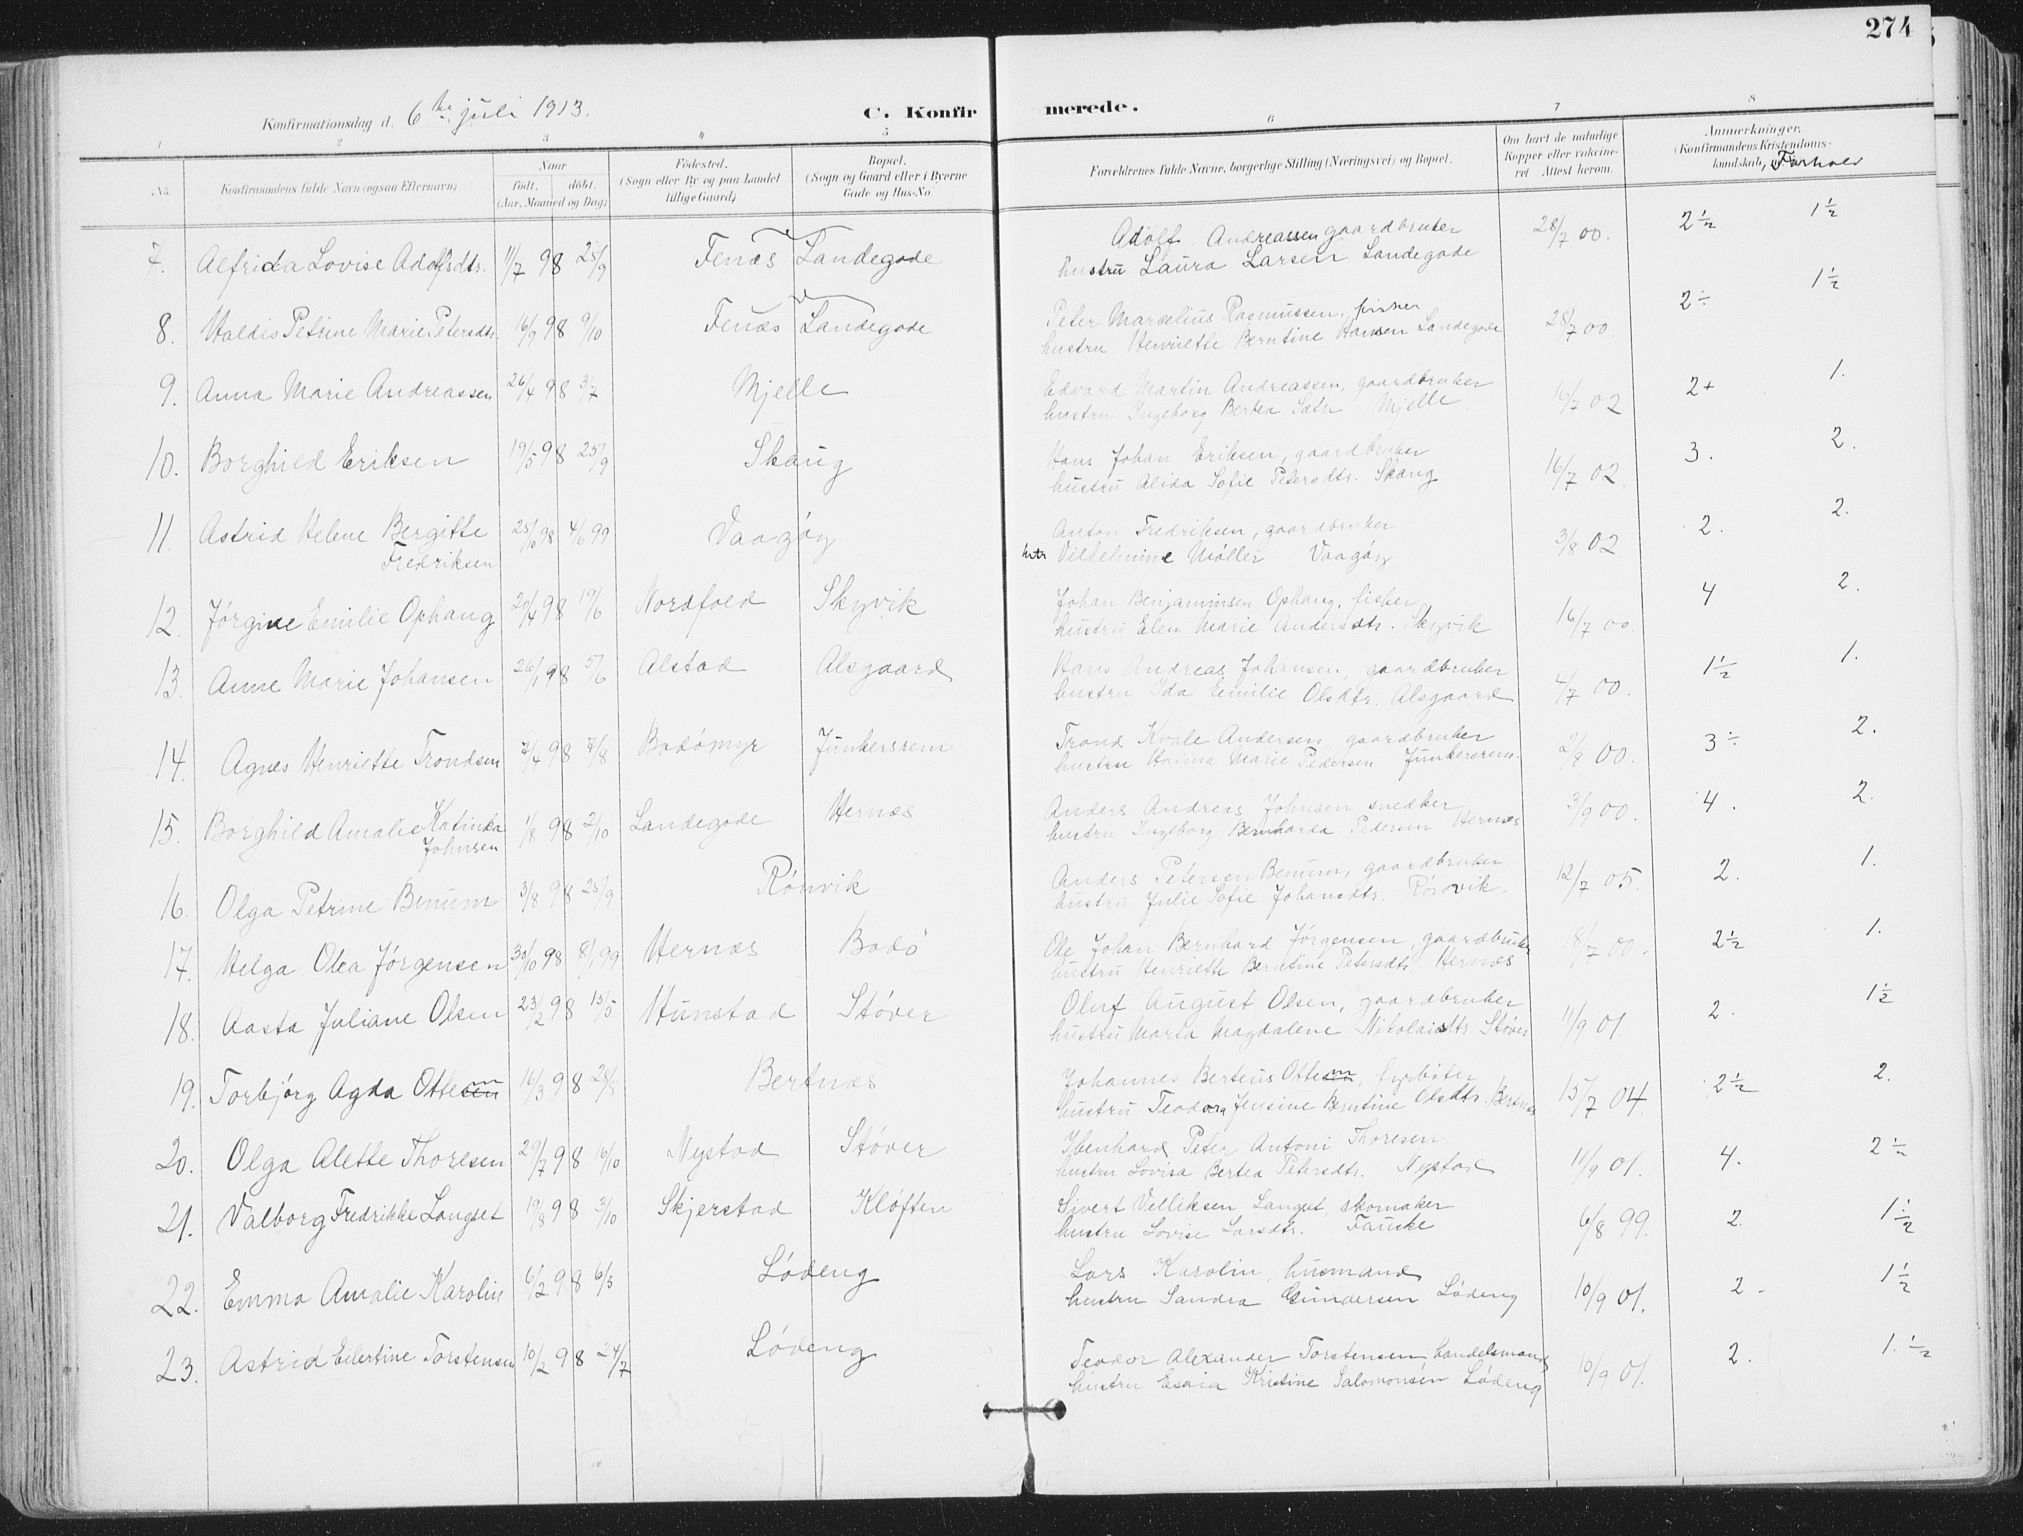 274
Konfirmationsdag d. 6te juli 1913.
C. Konfirmerede.
1 2 3 4 5 6 7 8
No.
Konfirmandens fulde Navn (ogsaa Efternavn)
Naar
født, døbt.
(Aar, Maaned og Dag)
Fødested.
(Sogn eller By og paa Landet
tillige Gaard)
Bopæl.
(Sogn og Gaard eller i Byerne
Gade og Hus-No.
Forældrenes fulde Navne, borgerlige Stilling (Næringsvei) og Bopæl.
Om havt de naturlige
Kopper eller vakcine-
ret Attest herom.
Anmerkninger.
(Konfirmandens Kristendoms-
kundskab, Forhold
7. Alfrida Lovise Adolfsdtr. 11/7 98 25/9 Fenæs Landegode
Adolf Andreassen gaardbruker
hustru Laura Larsen Landegode
28/7 00. 2½ 1½
8. Haldis Petrine Marie Petersdtr. 16/9 98 9/10 Fenæs Landegode
Peter Marselius Rasmussen, fisker
hustru Henriette Berntine Hansen Landegode
28/7 00. 2÷ 1½
9. Anna Marie Andreassen 26/4 98 3/7 Mjelle
Edvard Martin Andreassen, gaardbruker
hustru Ingeborg Bertea Sætr Mjelle
16/7 02 2+ 1.
10. Borghild Eriksen 19/5 98 25/9 Skaug
Hans Johan Eriksen, gaardbruker
hustru Alida Sofie Petersdtr. Skaug
16/7 02. 3. 2.
11. Astrid Helene Bergitte
Fredriksen
25/10 98 4/6 99 Vaagøy
Anton Fredriksen, gaardbruker
hstr Vilhelmine Møller Vaagøy
3/8 02. 2. 2.
12. Jørgine Emilie Ophaug 20/4 98 19/6 Nordfold Skyvik
Johan Benjaminsen Ophaug, fisker
hustru Elen Marie Andersdtr. Skyvik
16/7 00. 4 2.
13. Anne Marie Johansen 26/1 98 5/6 Alstad Alsgaard
Hans Andreas Johansen, gaardbruker
hustru Ida Emilie Olsdtr. Alsgaard
4/7 00. 1½ 1.
14. Agnes Henriette Trondsen 7/4 98 7/8 Bodömyr Junkersrem
Trond Kvale Andersen, gaardbruker
hustru Hanna Marie Pedersen Junkersrem.
2/8 00. 3÷ 2.
15. Borghild Amalie Katinka
Johnsen
1/8 98 2/10 Landegode Hernæs
Anders Andreas Johnsen snedker
hustru Ingeborg Bernharda Pedersen Hernæs
3/9 00. 4. 2.
16. Olga Petrine Benum 3/8 98 25/9 Rønvik
Anders Petersen Benum, gaardbruker
hustru Julie Sofie Johansdtr. Rønvik.
12/7 05. 2. 1.
17. Helga Olea Jørgensen 30/10 98 8/1 99 Hernæs Bodö
Ole Johan Bernhard Jørgensen, gaardbruker
hustru Henriette Berntine Petersdtr Hernæs
8/7 00. 2½ 1.
18. Aasta Juliane Olsen 23/2 98 15/5 Hunstad Støver
Oluf August Olsen, gaardbruker
hustru Maria Magdalene Nikolaisdtr. Støver
11/9 01. 2. 1½
19. Torbjørg Agda Ottem 16/3 98 28/8 Bertnæs
Johannes Berteus Ottem, fyrbøter
hustru Teodora Jensine Berntine Olsdtr. Bertnæs
15/7 04. 2½ 2.
20. Olga Alette Thoresen 29/7 98 16/10 Nystad Støver
Ibenhard Peter Antoni Thoresen
hustru Lovisa Bertea Petersdtr. Nystad
11/9 01. 4. 2½
21. Valborg Fredrikke Langset 19/8 98 3/10 Skjerstad Kløften
Sivert Velliksen Langset, skomaker
hustru Lovise Larsdtr. Fauske
6/8 99. 2. 1½
22. Emma Amalie Karolin 6/2 98 6/5 Lødeng
Lars Karolin, husmand
hustru Sandra Gundersen Lødeng
10/9 01. 2. 1½
23. Astrid Eilertine Torstensen 10/2 98 24/7 Lødeng
Teodor Alexander Torstensen, handelsmand
hustru Esaia Kristine Salomonsen Lødeng
10/9 01. 2. 1.½